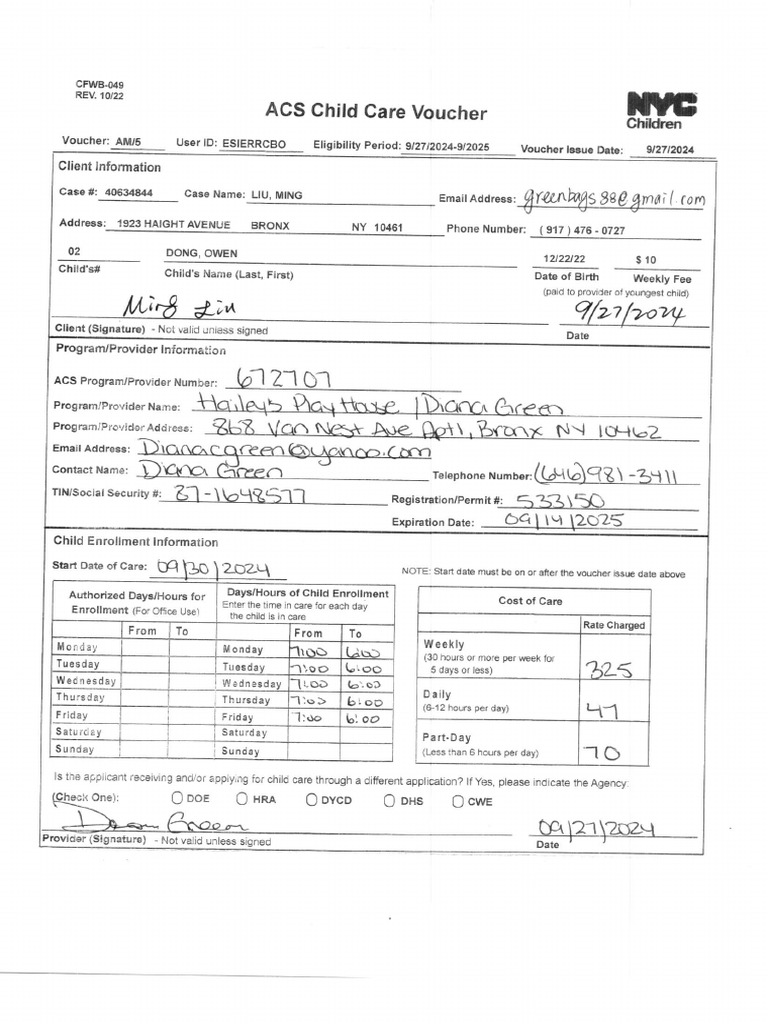 CFWB-049
REV. 10/22
ACS Child Care Voucher
NYC
Children
Voucher: AM/5 User ID: ESIERRCBO Eligibility Period: 9/27/2024-9/2025 Voucher Issue Date: 9/27/2024
Client Information
Case #: 40634844 Case Name: LIU, MING Email Address: greenbags88@gmail.com
Address: 1923 HAIGHT AVENUE BRONX NY 10461 Phone Number: ( 917 ) 476 - 0727
02 DONG, OWEN 12/22/22 $ 10
Child's# Child's Name (Last, First) Date of Birth Weekly Fee
(paid to provider of youngest child)
Ming Liu 9/27/2024
Client (Signature) - Not valid unless signed Date
Program/Provider Information
ACS Program/Provider Number: 672707
Program/Provider Name: Hailey's Play House | Diana Green
Program/Provider Address: 868 Van Nest Ave Apt1, Bronx NY 10462
Email Address: Dianacgreen@yahoo.com
Contact Name: Diana Green Telephone Number: (646) 981-3411
TIN/Social Security #: 87-1648577 Registration/Permit #: 533150
Expiration Date: 09/14/2025
Child Enrollment Information
Start Date of Care: 09/30/2024 NOTE: Start date must be on or after the voucher issue date above
Authorized Days/Hours for Enrollment (For Office Use)
From To
Monday
Tuesday
Wednesday
Thursday
Friday
Saturday
Sunday
Days/Hours of Child Enrollment
Enter the time in care for each day the child is in care
From To
Monday 7:00 6:00
Tuesday 7:00 6:00
Wednesday 7:00 6:00
Thursday 7:00 6:00
Friday 7:00 6:00
Saturday
Sunday
Cost of Care
Rate Charged
Weekly
(30 hours or more per week for
5 days or less) 325
Daily
(6-12 hours per day) 47
Part-Day
(Less than 6 hours per day) 70
Is the applicant receiving and/or applying for child care through a different application? If Yes, please indicate the Agency:
(Check One): DOE HRA DYCD DHS CWE
Diana Green 09/27/2024
Provider (Signature) - Not valid unless signed Date